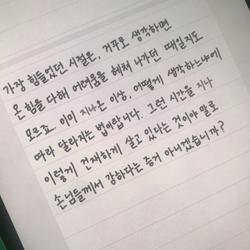 가장 힘들었던 시절은, 거꾸로 생각하면
온 힘을 다해 어려움을 헤쳐 나가던 때일지도
모르죠. 이미 지나간 이상, 어떻게 생각하느냐에
따라 달라지는 법이랍니다. 그런 시간을 지나
이렇게 건재하게 살고 있다는 것이야 말로
손님들께서 강하다는 증거 아니겠습니까?